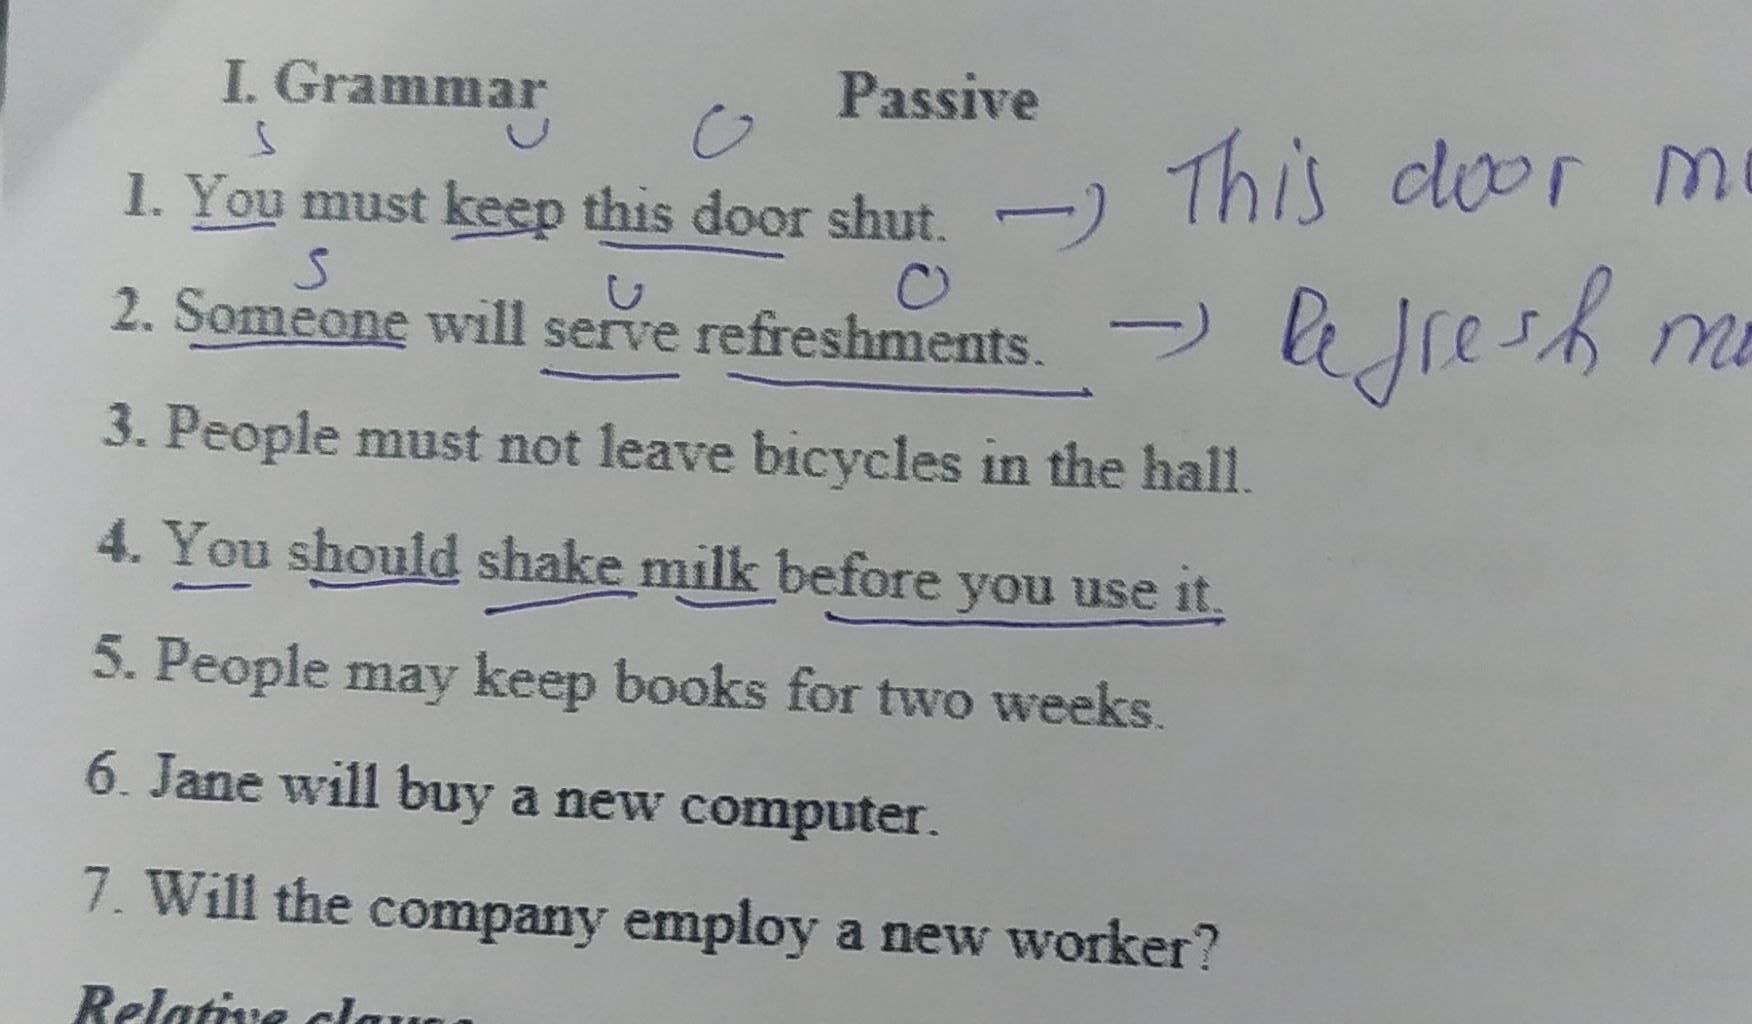 I. Grammar Passive
S U O
1. You must keep this door shut. → This door
S U O
2. Someone will serve refreshments. → Refresh
3. People must not leave bicycles in the hall.
4. You should shake milk before you use it.
5. People may keep books for two weeks.
6. Jane will buy a new computer.
7. Will the company employ a new worker?
Relative clause